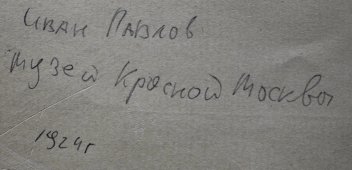 Иван Павлов
Музей Красной Москвы
1924г